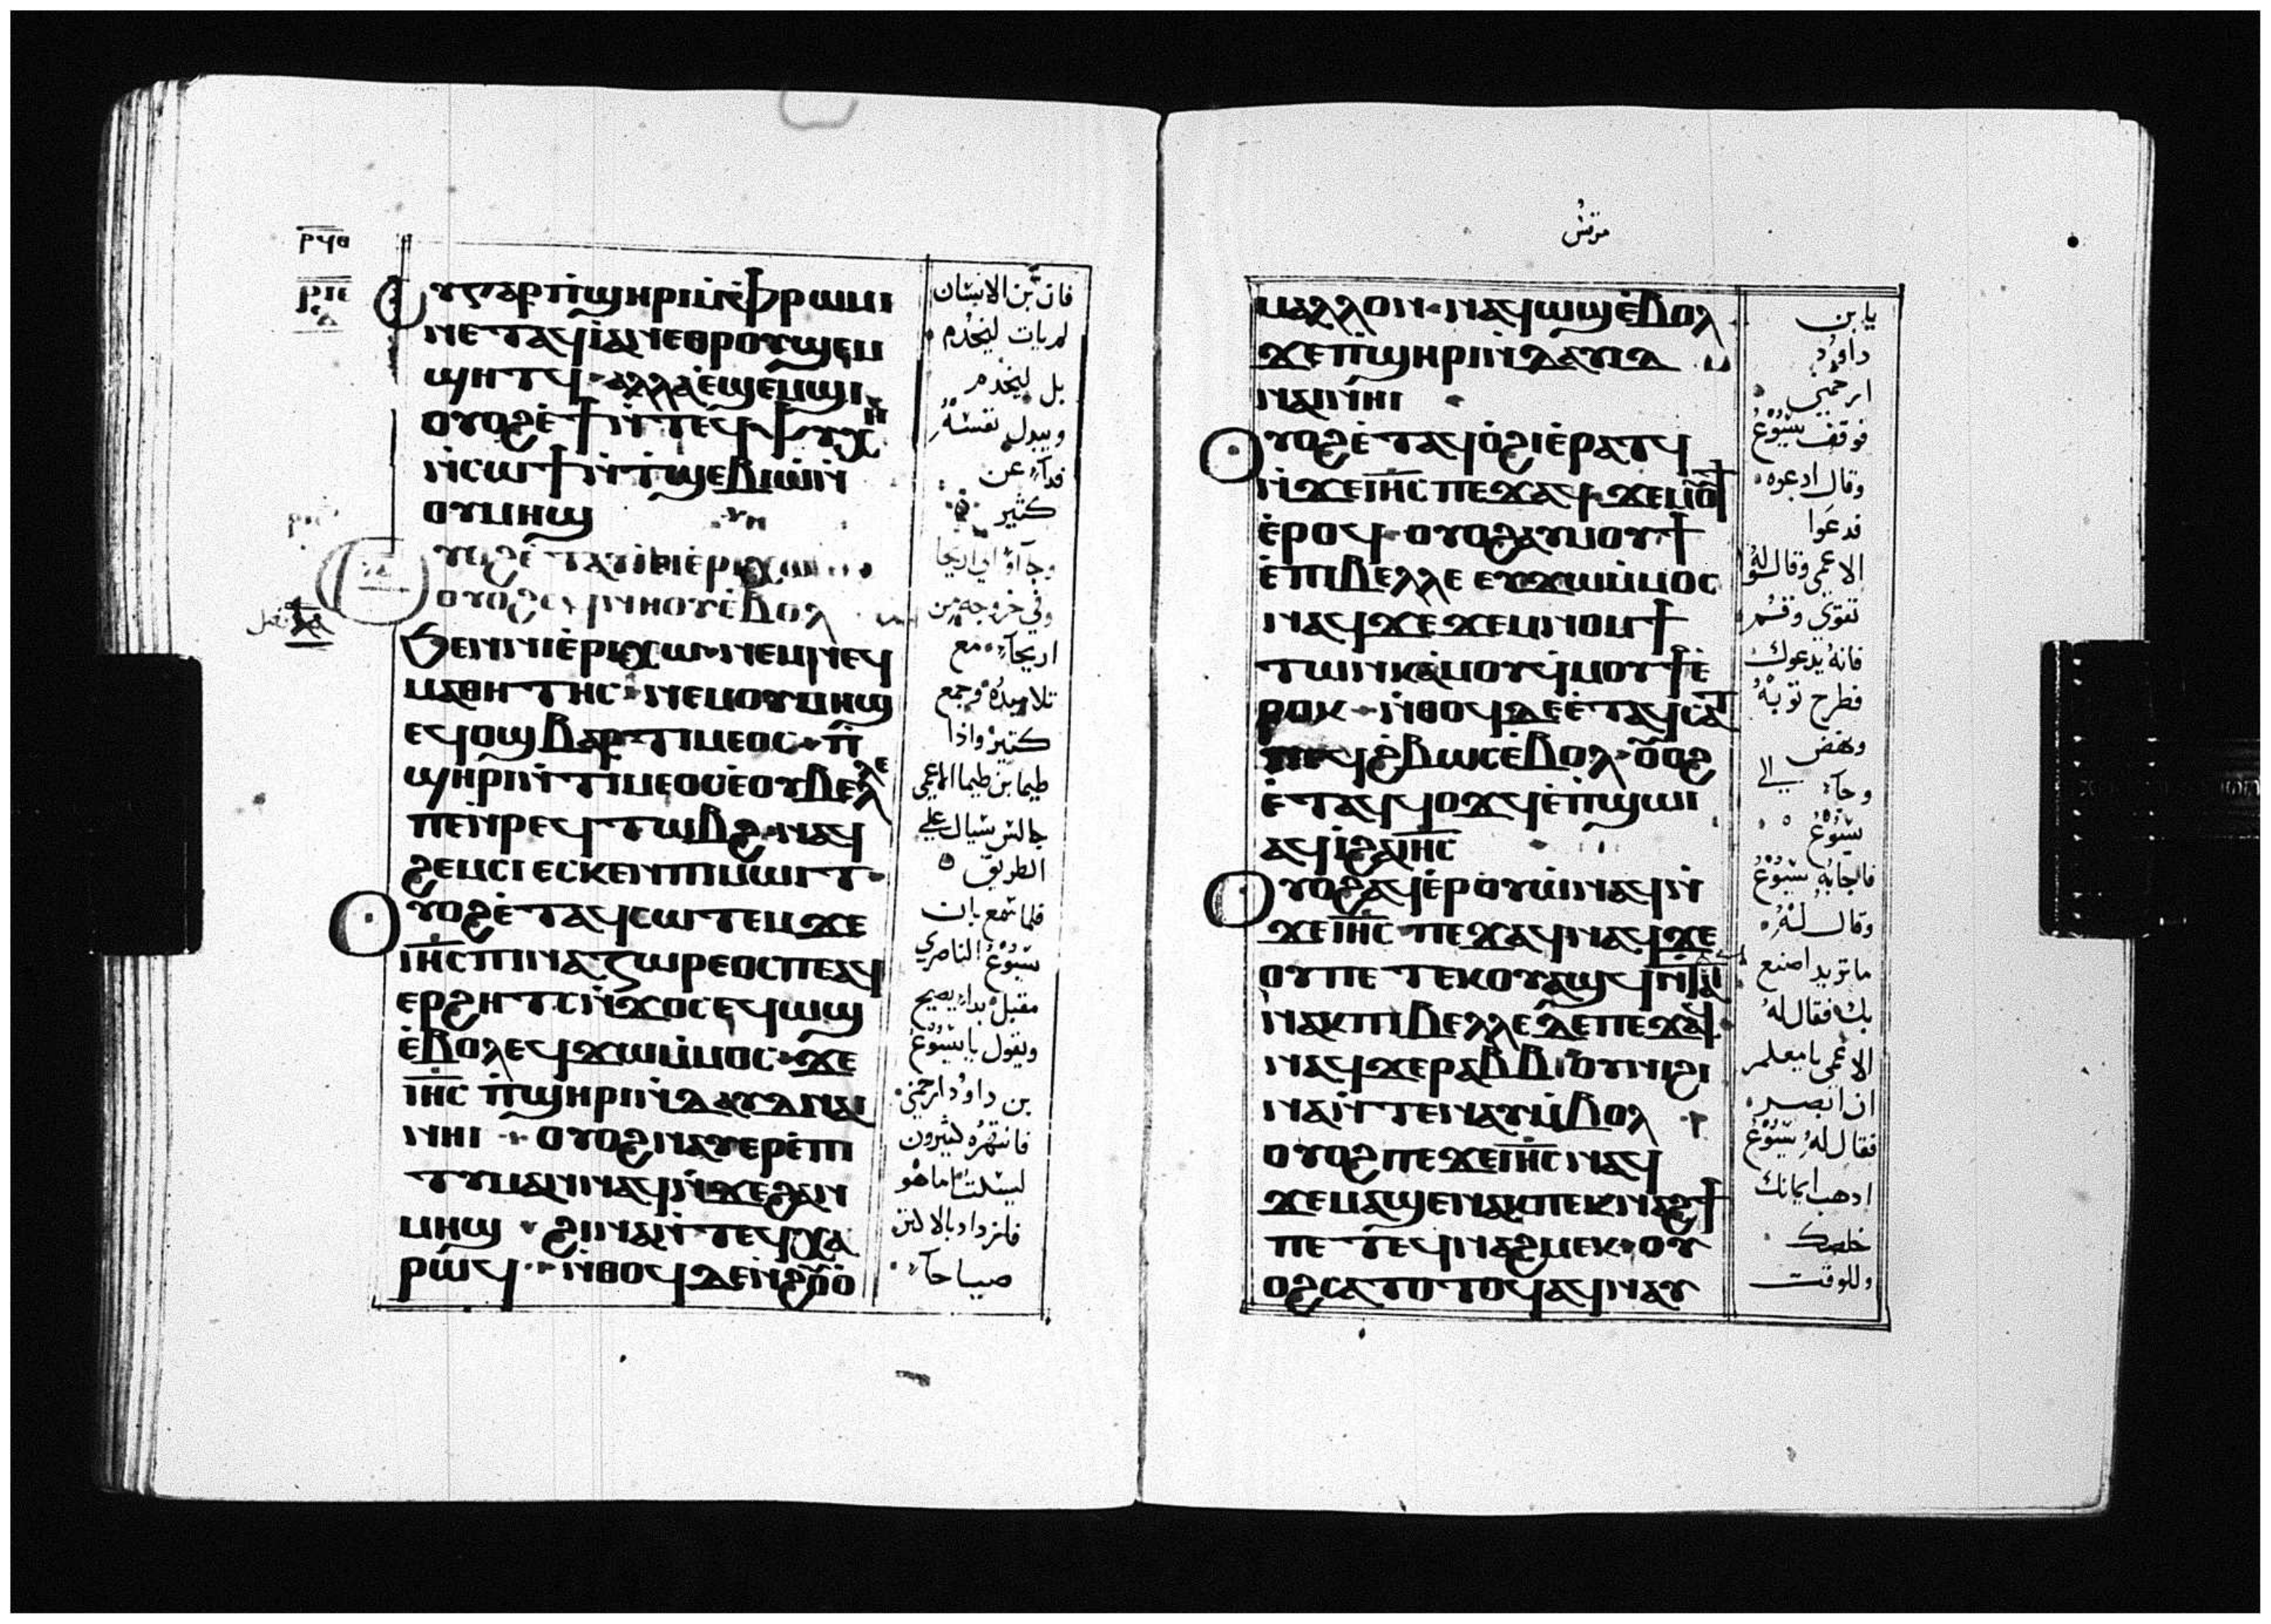 ⲣϥⲑ
ⲟⲩⲅⲁⲣ ⲡ̀ϣⲏⲣⲓ ⲙ̀ⲫ̀ⲣⲱⲙⲓ
ⲛⲉⲧⲁϥⲓ̀ ⲁⲛ ⲉⲑⲣⲟⲩϣⲉⲙ
ϣⲏⲧϥ ⲁⲗⲗⲁ ⲉ̀ϣⲉⲙϣⲓ
ⲟⲩⲟϩ ⲉ̀ϯ ⲛ̀ⲧⲉϥⲯⲩⲭⲏ
ⲛ̀ⲥⲱϯ ⲛ̀ⲧ̀ϣⲉⲃⲓⲱ̀ ⲛ̀
ⲟⲩⲙⲏϣ
ⲟⲩⲟϩ ⲉ̀ⲧⲁⲩⲓ̀ ⲉ̀ⲓⲉⲣⲓⲭⲱ
ⲟⲩⲟϩ ⲉϥⲛⲏⲟⲩ ⲉ̀ⲃⲟⲗ
ϧⲉⲛ ⲓⲉ̀ⲣⲓⲭⲱ ⲛⲉⲙ ⲛⲉϥ
ⲙⲁⲑⲏⲧⲏⲥ ⲛⲉⲙ ⲟⲩⲙⲏϣ
ⲉϥⲟϣ ⲃⲁⲣⲧⲓⲙⲉⲟⲥ ⲡ̀
ϣⲏⲣⲓ ⲛ̀ⲧⲓⲙⲉⲟⲥ ⲉ̀ⲟⲩⲃⲉⲗⲗⲉ
ⲡⲉ ⲛ̀ⲣⲉϥⲧⲱⲃϩ ⲛⲁϥ
ϩⲉⲙⲥⲓ ⲉⲥⲕⲉⲛ ⲡⲓⲙⲱⲓⲧ
ⲟⲩⲟϩ ⲉ̀ⲧⲁϥⲥⲱⲧⲉⲙ ϫⲉ
ⲓⲏ̅ⲥ̅ ⲡⲓⲛⲁⲍⲱⲣⲉⲟⲥ ⲡⲉ ⲁϥ
ⲉⲣϩⲏⲧⲥ ⲛ̀ϫⲟⲥ ⲉϥⲱϣ
ⲉ̀ⲃⲟⲗ ⲉϥϫⲱ ⲙ̀ⲙⲟⲥ ϫⲉ
ⲓⲏ̅ⲥ̅ ⲡ̀ϣⲏⲣⲓ ⲛ̀ⲇⲁⲩⲇ ⲛⲁⲓ
ⲛⲏⲓ ⲟⲩⲟϩ ⲛⲁⲩⲉⲣⲉ̀ⲡⲓ
ⲧⲩⲙⲁⲛ ⲛⲁϥ ⲛ̀ϫⲉ ϩⲁⲛ
ⲙⲏϣ ϩⲓⲛⲁ ⲛ̀ⲧⲉϥⲭⲁ
ⲣⲱϥ ⲛ̀ⲑⲟϥ ⲇⲉ ⲛ̀ϩⲟⲩⲟ̀
فان بن الانسان
لم يات ليخدم
بل ليخدم
ويبدل نفسه
فدآء عن
كثير
وجآاو الي اريحا
وفي خروجه من
اريحآء مع
تلاميده وجمع
كتير واذا
طيما بن طيما الاعمى
جالس يسال على
الطريق
فلما سمع بان
يسوع الناصري
مقبل بدا يصيح
ويقول يا يسوع
بن داود ارحمني
فانتهره كثيرون
ليسكت اما هو
فازداد بالاكثر
صياحآ
مرقس
ⲙⲁⲗⲗⲟⲛ ⲛⲁϥⲱϣ ⲉ̀ⲃⲟⲗ
ϫⲉ ⲡ̀ϣⲏⲣⲓ ⲛ̀ⲇⲁⲩⲓⲇ
ⲛⲁⲓ ⲛⲏⲓ
ⲟⲩⲟϩ ⲉ̀ⲧⲁϥⲟ̀ϩⲓ ⲉ̀ⲣⲁⲧϥ
ⲛ̀ϫⲉ ⲓⲏ̅ⲥ̅ ⲡⲉϫⲁϥ ϫⲉ ⲙⲟⲩϯ
ⲉ̀ⲣⲟϥ ⲟⲩⲟϩ ⲁⲩⲙⲟⲩϯ
ⲉ̀ⲡⲓⲃⲉⲗⲗⲉ ⲉⲩϫⲱ ⲙ̀ⲙⲟⲥ
ⲛⲁϥ ϫⲉ ϫⲉⲙⲛⲟⲙϯ
ⲧⲱⲛⲕ ⲁ̀ⲙⲟⲩ ϥ̀ⲙⲟⲩϯ ⲉ̀
ⲣⲟⲕ ⲛ̀ⲑⲟϥ ⲇⲉ ⲉ̀ⲧⲁϥⲥⲁⲧ
ⲡⲉϥϩ̀ⲃⲱⲥ ⲉ̀ⲃⲟⲗ ⲟⲩⲟϩ
ⲉ̀ⲧⲁϥϥⲟϫϥ ⲉ̀ⲡ̀ϣⲱⲓ
ⲁϥⲓ̀ ϩⲁ ⲓⲏ̅ⲥ̅
ⲟⲩⲟϩ ⲁϥⲉ̀ⲣⲟⲩⲱ̀ ⲛⲁϥ ⲛ̀
ϫⲉ ⲓⲏ̅ⲥ̅ ⲡⲉϫⲁϥ ⲛⲁϥ ϫⲉ
ⲟⲩ ⲡⲉⲧⲉⲕⲟⲩⲁϣϥ ⲛ̀ⲧⲁⲁⲓϥ
ⲛⲁⲕ ⲡⲓⲃⲉⲗⲗⲉ ⲇⲉ ⲡⲉϫⲁϥ
ⲛⲁϥ ϫⲉ ⲣⲁⲃⲃⲓ ⲟⲩⲛⲓϩⲓ
ⲛⲁ ⲛ̀ⲧⲉⲛⲁⲩ ⲙ̀ⲃⲟⲗ
ⲟⲩⲟϩ ⲡⲉϫⲉ ⲓⲏ̅ⲥ̅ ⲛⲁϥ
ϫⲉ ⲙⲁϣⲉⲛⲁⲕ ⲡⲉⲕⲛⲁϩϯ
ⲡⲉⲧⲉϥⲛⲁϩⲙⲉⲕ ⲟⲩ
ⲟϩ ⲥⲁⲧⲟⲧϥ ⲁϥⲛⲁⲩ
يا بن
داود
ارحمني
فوقف يسوع
وقال ادعوه
فدعوا
الاعمى وقالوا له
تقوى وقم
فانه يدعوك
فطرح توبه
ونهض
وجآء الى
يسوع
فاجابه يسوع
وقال له
ما تريد اصنع
بك فقال له
الاعمى يا معلم
ان ابصر
فقال له يسوع
ادهب ايمانك
خلصك
وللوقت